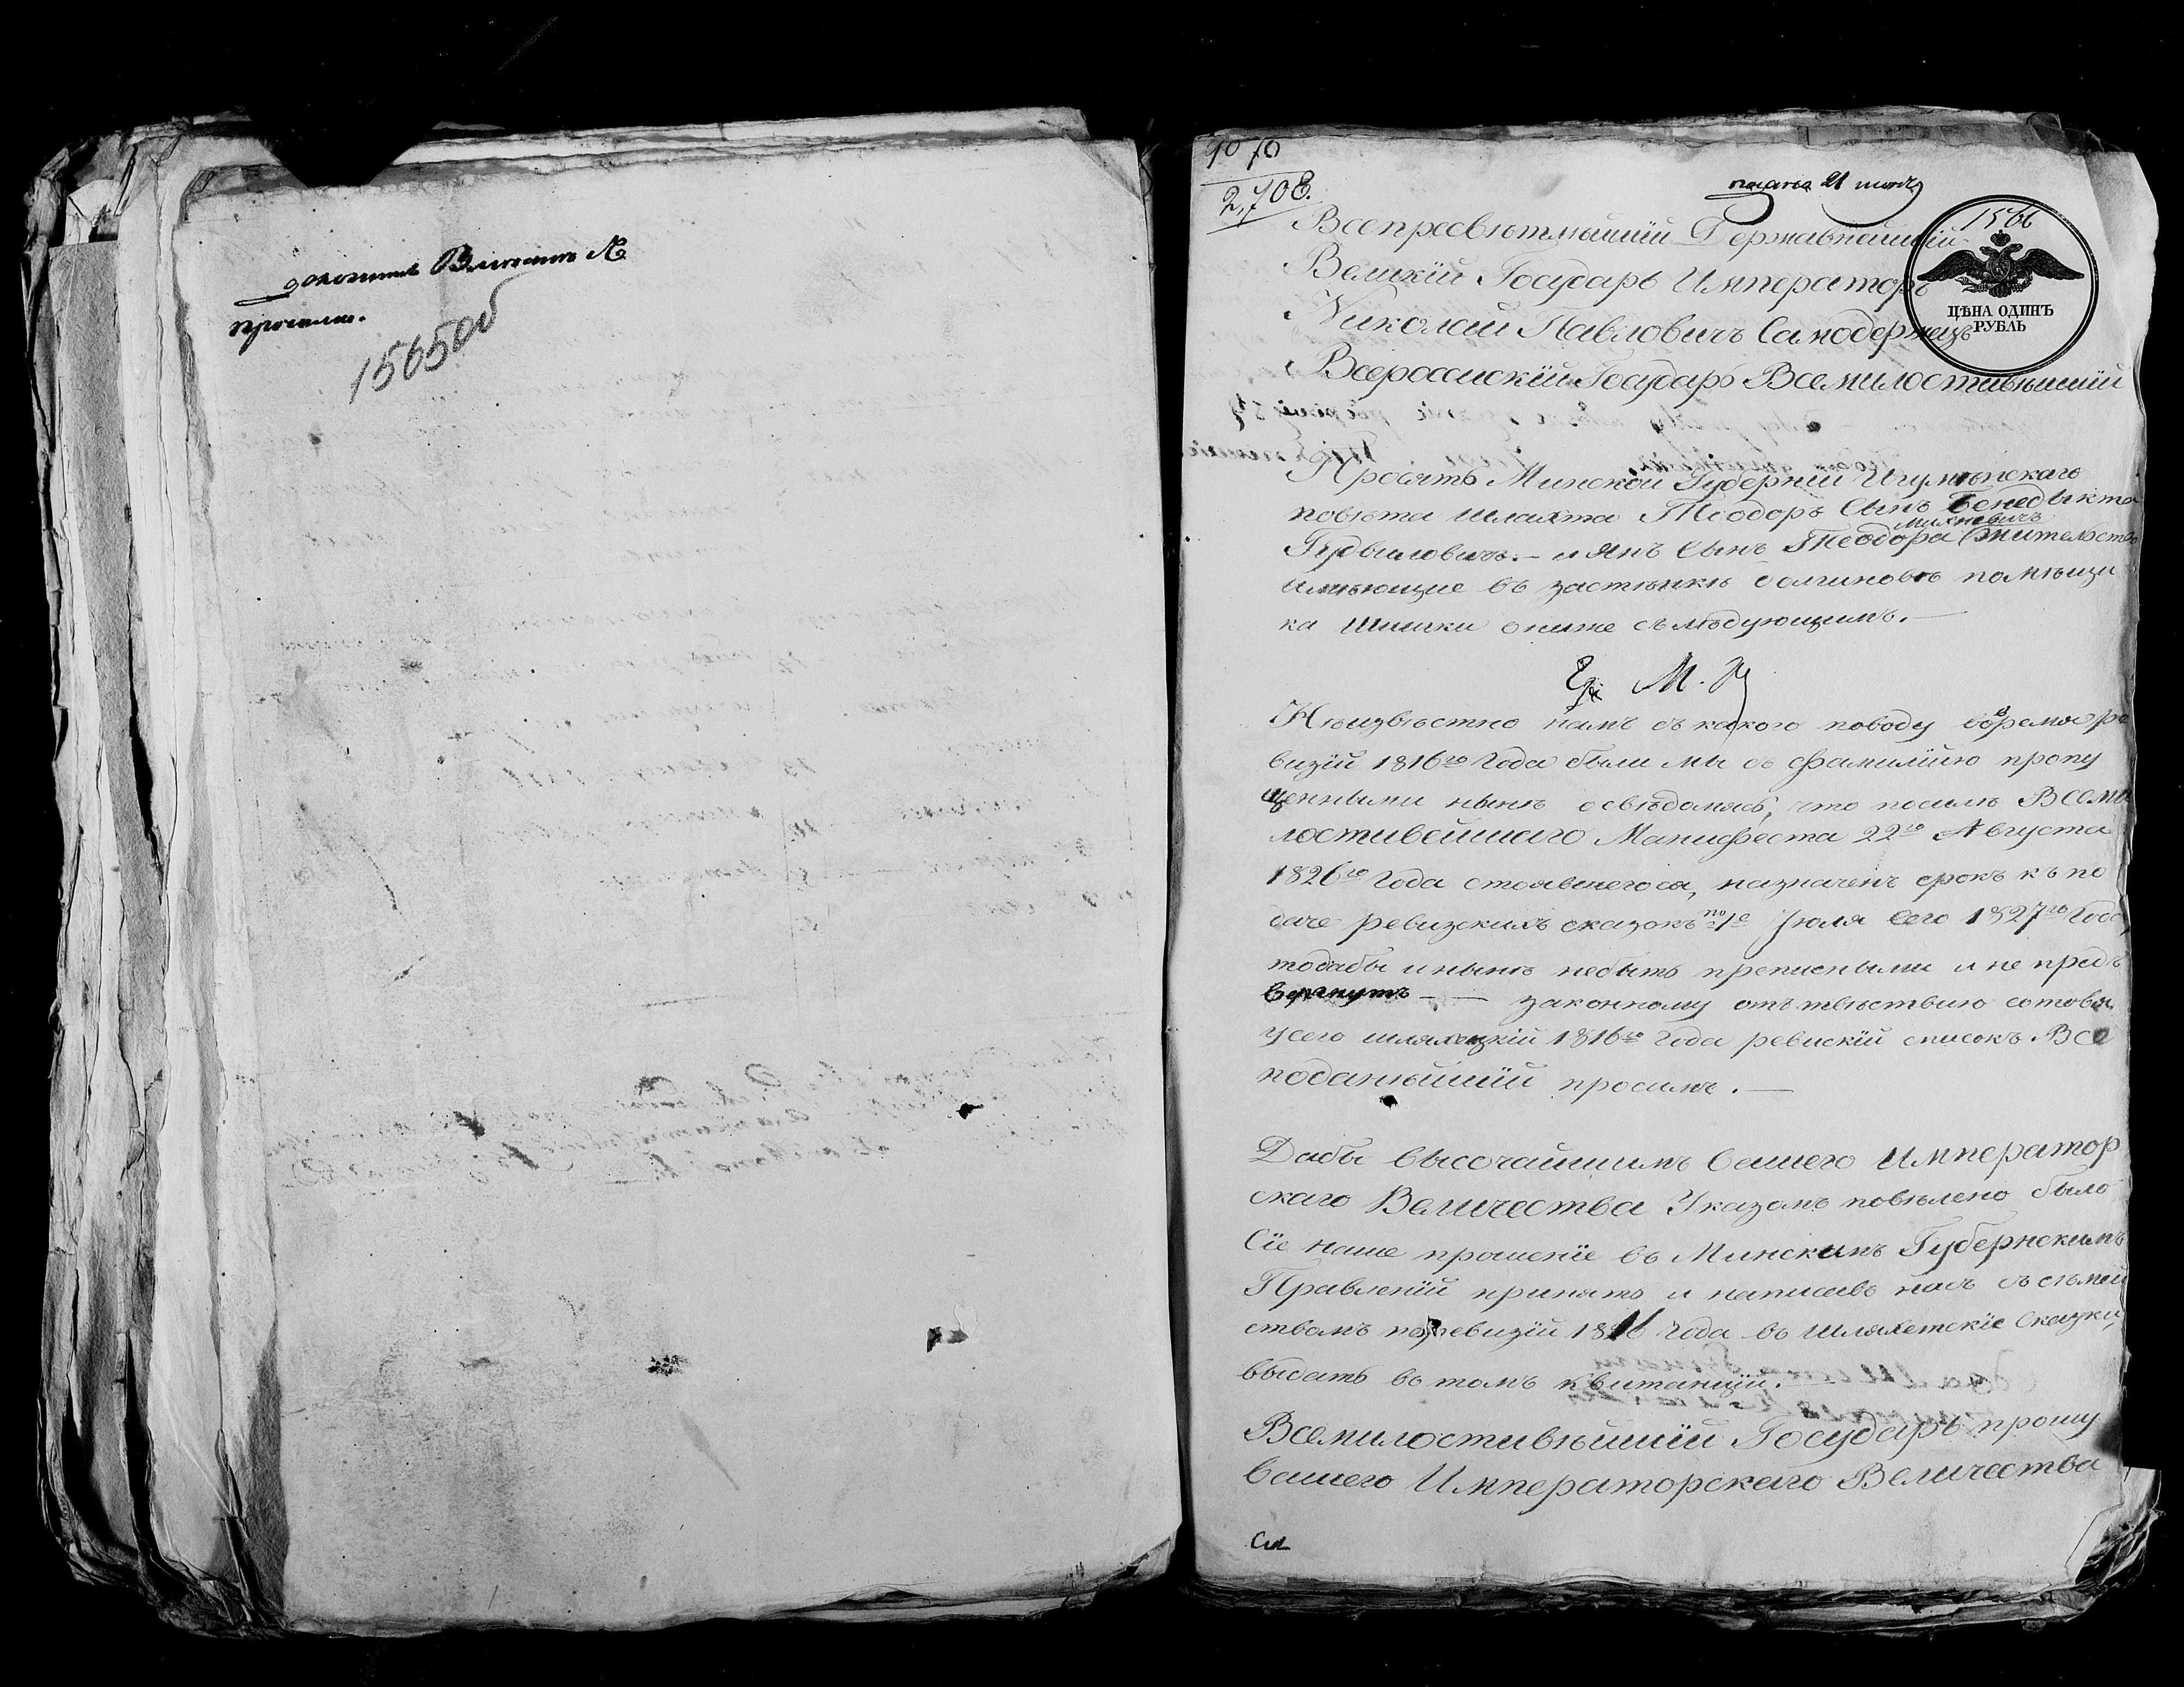 1565об
1070
2,708.
подана 21 июня
1566
Всепресвѣтлѣйшій Державнейшій
Великій Государь Императоръ
ЦѢНА ОДИНЪ
РУБЛЬ
Николай Павловичъ Самодержецъ
Всеросискій Государь Всемилостивѣишій
Просятъ Минской Губерніи Игумѣнскаго
повѣта шляхта Теодоръ Сынъ Бенедыкта
Гудвиловичъ. – и Янъ Сынъ Теодора Жительство
имѣющие въ застѣнкѣ помѣщи
ка Шишки о ниже слѣдующимъ. —
Нѣизвѣстно намъ съ какого поводу вовремя ре
визіи 1816го Года были мы съ фамиліию пропу
щенными нынѣ освѣдомясь, что посилѣ Всеми
лостивейшаго Манифеста 22го Августа
1826го Года стоявшегося, назначенъ срокъ къ по
даче ревизскихъ сказокъ по 1е Іюля Сего 1827го Года,
тодабы и нынѣ небыть прописными и не предъ
вергнутъ — — законному отъ
усего шляхецкій 1816го Года ревискій списокъ. Все
поданѣйшій просимъ. —
Дабы высочайшимъ Вашего Император
скаго Величества Указомъ повѣлено было
Сіе наше прошеніе въ Минскимъ Губернскимъ
Правленіи принять и написавъ насъ съ сѣмей
ствомъ поревизіи 1816 Года въ Шляхетскіе Сказки,
выдать въ томъ квитанціи. —
Всемилостивѣйшій Государь прошу
Вашего Императорскаго Величества